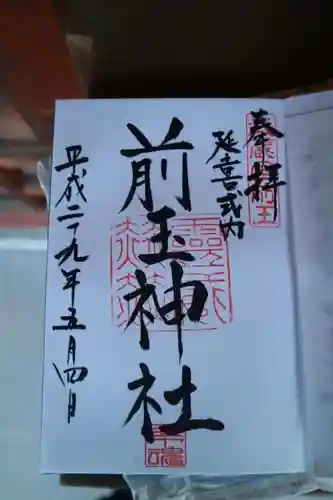 奉拝
延喜式内
前玉神社
平成二十九年五月四日